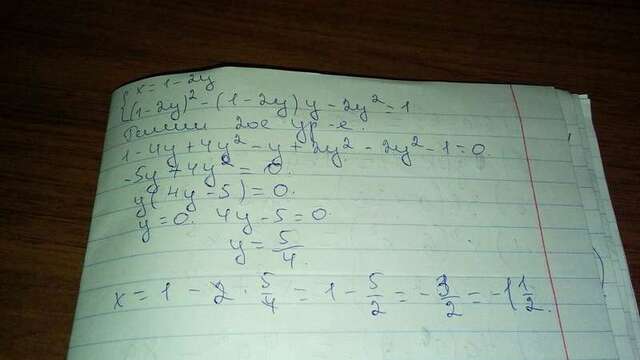 { x = 1 - 2y
(1 - 2y)² - (1 - 2y) y - 2y² = 1
Решим 2ое ур-е.
1 - 4y + 4y² - y + 2y² - 2y² - 1 = 0
-5y + 4y² = 0.
y(4y - 5) = 0.
y = 0. 4y - 5 = 0
y = 5/4.
x = 1 - 2 · 5/4 = 1 - 5/2 = -3/2 = -1 1/2.